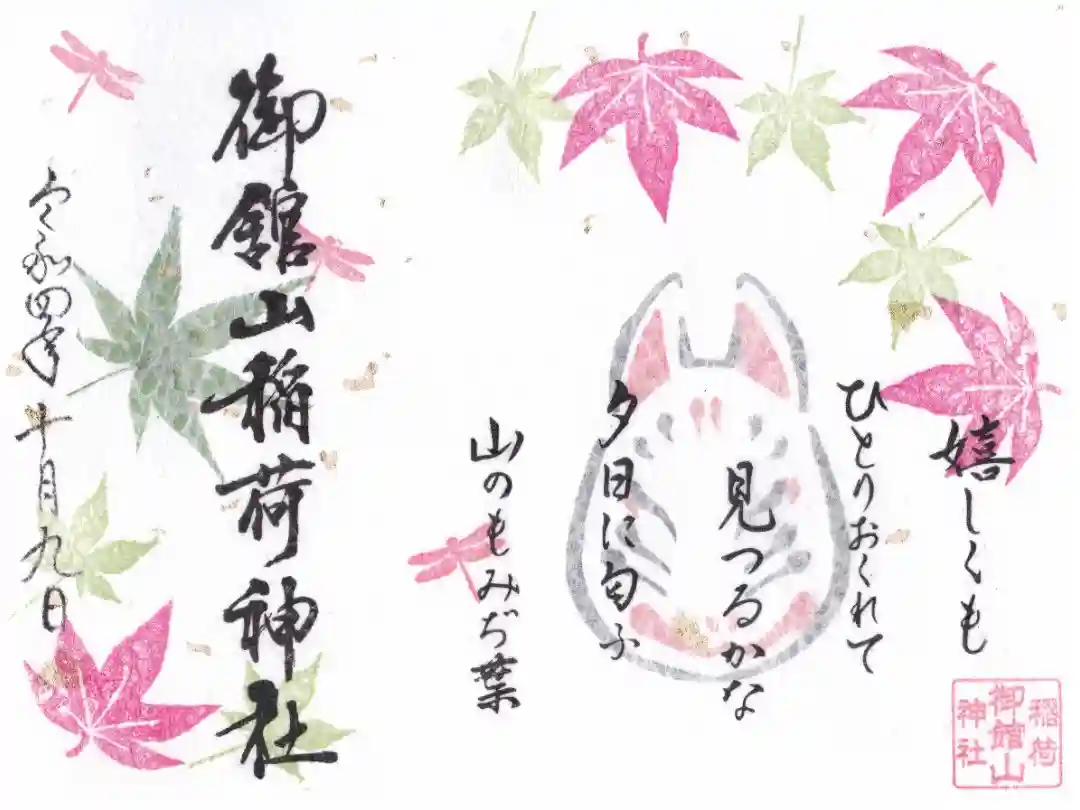 嬉しくも
ひとりおくれて
見つるかな
夕日に匂ふ
山のもみぢ葉
御館山稲荷神社
令和四年 十月九日
稲荷
御館山
神社